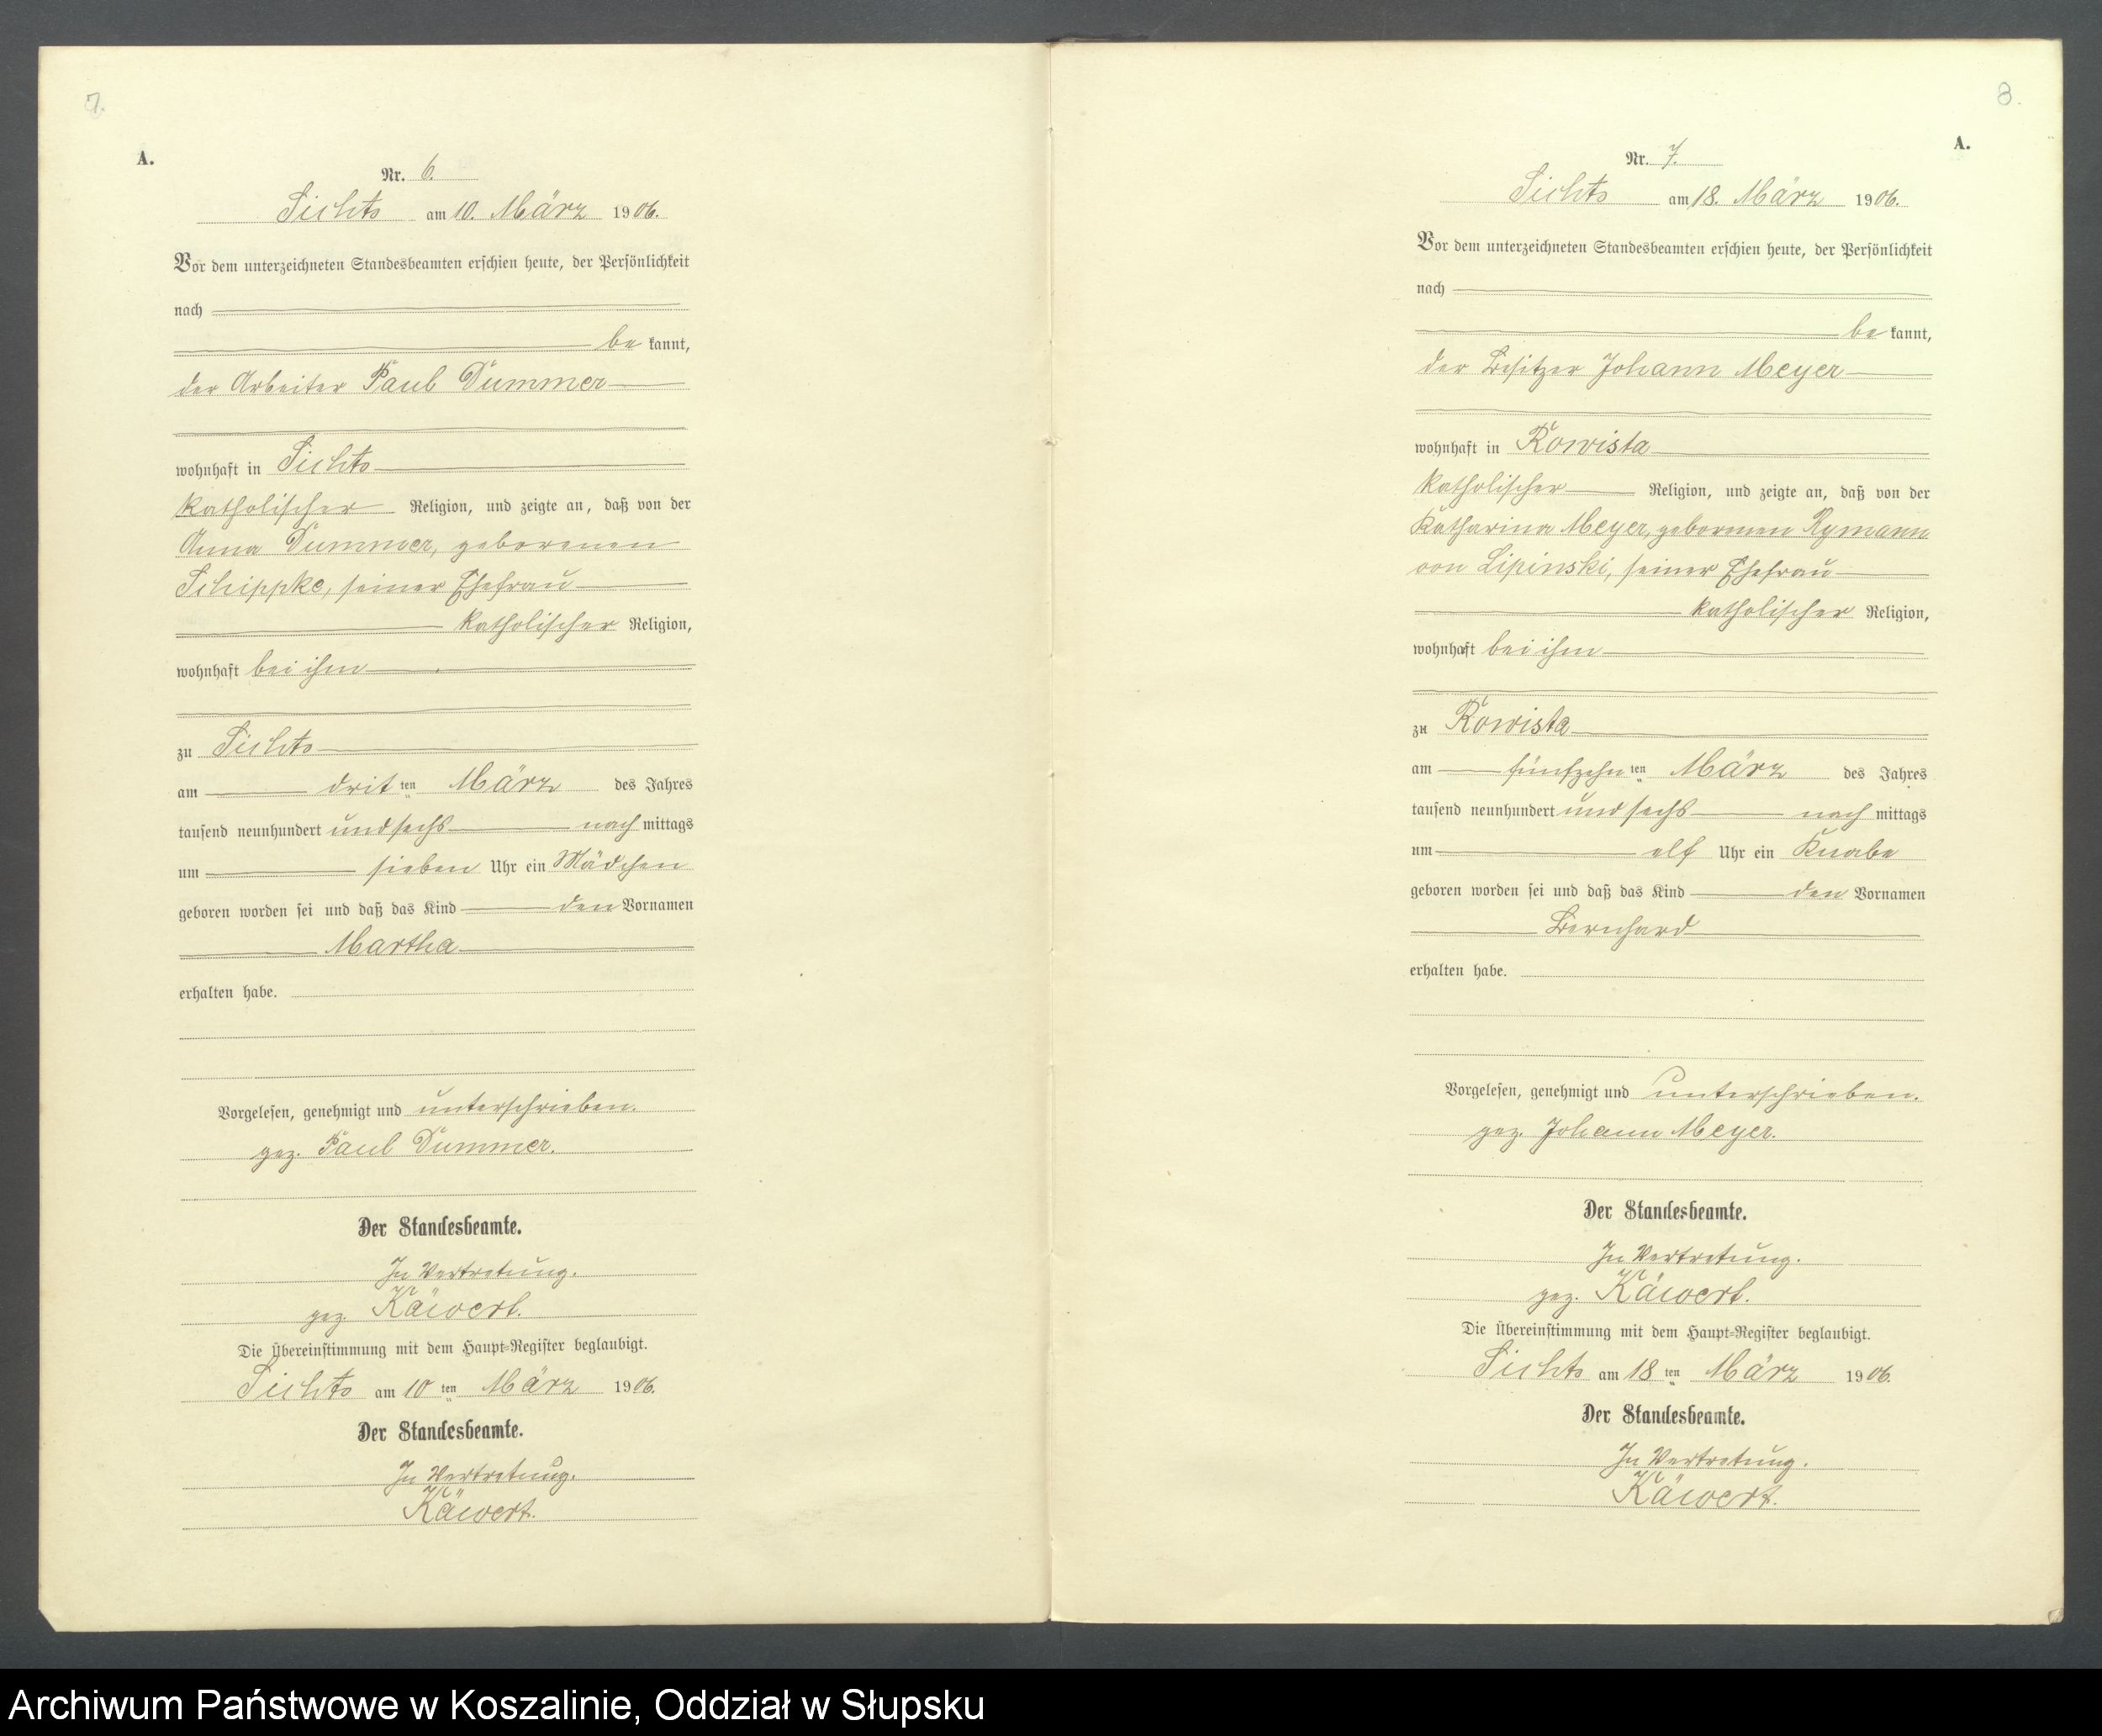 7.
A.
Nr. 6.
Sichts am 10. März 1906.
Vor dem unterzeichneten Standesbeamten erschien heute, der Persönlichkeit
nach
be kannt,
der Arbeiter Paul Dummer
wohnhaft in Sichts
katholischer Religion, und zeigte an, daß von der
Anna Dummer, geborenen
Schippke, seiner Ehefrau
katholischer Religion,
wohnhaft bei ihm
zu Sichts
am drit ten März des Jahres
tausend neunhundert und sechs nach mittags
um sieben Uhr ein Mädchen
geboren worden sei und daß das Kind den Vornamen
Martha
erhalten habe.
Vorgelesen, genehmigt und unterschrieben.
gez. Paul Dummer.
Der Standesbeamte.
In Vertretung.
gez. Käwert.
Die Übereinstimmung mit dem Haupt-Register beglaubigt.
Sichts am 10 ten März 1906.
Der Standesbeamte.
In Vertretung.
Käwert.
8.
A.
Nr. 7.
Sichts am 18. März 1906.
Vor dem unterzeichneten Standesbeamten erschien heute, der Persönlichkeit
nach
be kannt,
der Besitzer Johann Meyer
wohnhaft in Rowista
katholischer Religion, und zeigte an, daß von der
Katharina Meyer, gebornen Rymann
von Lipinski, seiner Ehefrau
katholischer Religion,
wohnhaft bei ihm
zu Rowista
am fünfzehn ten März des Jahres
tausend neunhundert und sechs nach mittags
um elf Uhr ein Knabe
geboren worden sei und daß das Kind den Vornamen
Bernhard
erhalten habe.
Vorgelesen, genehmigt und unterschrieben.
gez. Johann Meyer.
Der Standesbeamte.
In Vertretung.
gez. Käwert.
Die Übereinstimmung mit dem Haupt-Register beglaubigt.
Sichts am 18 ten März 1906.
Der Standesbeamte.
In Vertretung.
Käwert.
Archiwum Państwowe w Koszalinie, Oddział w Słupsku